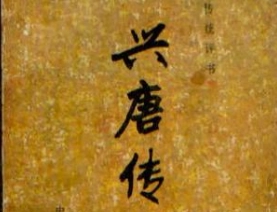 传统评书
兴唐传